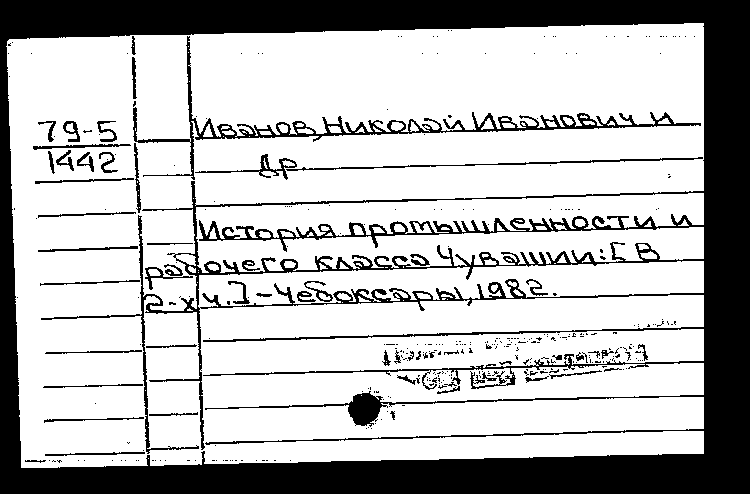 79-5
1442
Иванов, Николай Иванович и
др.
История промышленности и
рабочего класса Чувашии: [В
2-х ч.]. - Чебоксары, 1982.